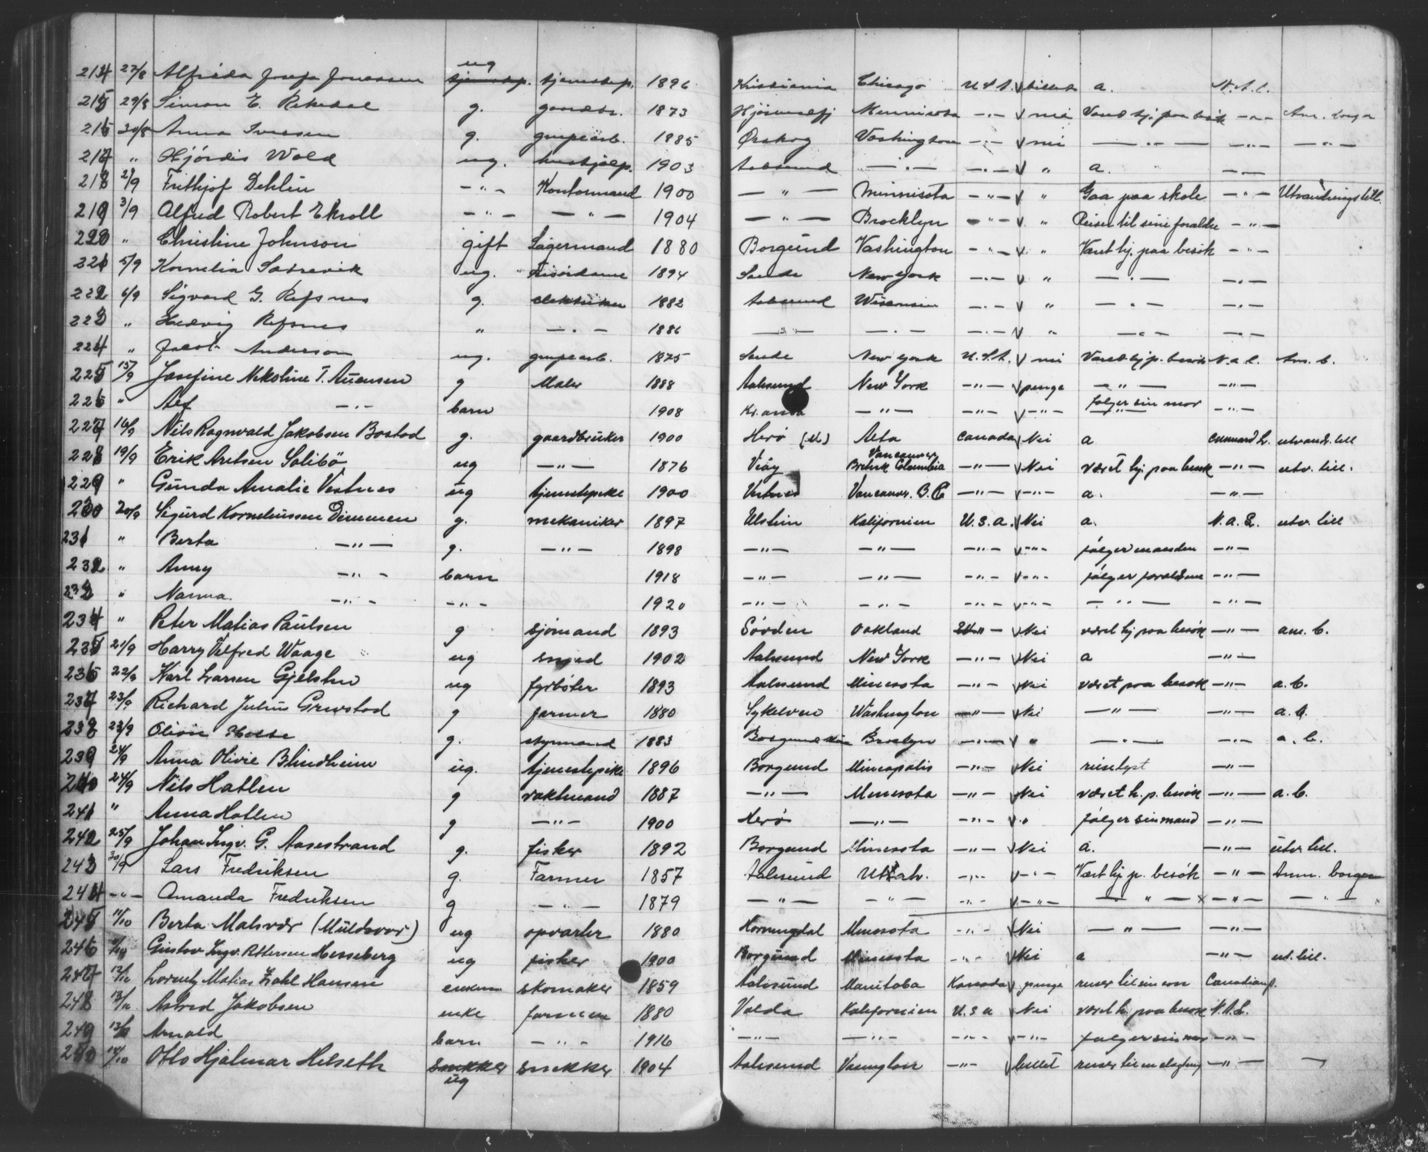 214 27/8 Alfrida Josefa Jonassen ug tjenestep. 1896 Kristiania Chicago U.S.A. V billett a. N.A.L.
215 29/8 Simon E. Rekedal g. gaardbr. 1873 Hjörundfj Minnisota -"- V nei Været hj. paa besök -"- Am. borger
216 30/8 Anna Iversen g. 1885 Örskog Vashington -"- V nei -"- -"- -"-
217 " Hjördis Wold ug. hushjælp. 1903 Aalesund -"- -"- V " a. -"-
218 2/9 Frithjof Dehlin -"- Kontormand 1900 -"- Minnisota -"- V " Gaa paa skole -"- Utvandringstill.
219 3/9 Alfred Robert Ekroll -"- -"- 1904 -"- Brocklyn -"- V " Reiser til sine foraldre -"-
220 " Christine Johnson gift Lagermand 1880 Borgund Vashington -"- V " Været hj. paa besök -"-
221 5/9 Kornelia Satrevik ug. Frisördame 1894 Sande New York -"- V " -"- -"-
222 6/9 Sigvard G. Refsnes g. elektriker 1882 Aalesund Wisconsin -"- V " -"- -"-
223 " Hedvig Refsnes " -"- 1886 -"- -"- -"- V " -"- -"-
224 " Jacob Anderson ug. 1875 Sande New York U.S.A. V nei Været hj.p. besök N.A.L. Am. b.
225 15/9 Josefine Nekoline T. Auensen g Maler 1888 Aalesund New York -"- V penge -"- -"-
226 " Alf -"- barn 1908 Kr.ansa -"- -"- V -"- følger sin mor -"-
227 16/9 Nils Ragnvald Jakobsen Bostad g. gaardbruker 1900 Herö (M) Alta Canada V Nei a cunnard L. utvandr. till
228 19/9 Erik Aretsen Solibö ug -"- 1876 Vigö Vancouver British Columbia -"- V Nei været hj. paa besök -"- utv. till.
229 " Gunda Amalie Vestnes ug tjenestepike 1900 Vestnes Vancouver. B.C -"- V -"- a. -"-
230 20/9 Sigurd Korneliussen Dimmen g. mekaniker 1897 Ulstein Kalifornien U.S.A. V Nei a. N.A.L. utv till
231 " Berta -"- g. -"- 1898 -"- -"- -"- V -"- følger manden -"-
232 " Anny -"- barn 1918 -"- -"- -"- V -"- følger foraldrene -"-
233 " Nanna -"- -"- 1920 -"- -"- -"- V -"- -"- -"-
234 " Peter Matias Paulsen g sjömand 1893 Sövden Oakland -"- V Nei været hj paa besök -"- am. b.
235 21/9 Harry Alfred Waage ug smed 1902 Aalesund New York -"- V Nei a -"-
236 22/9 Karl Larsen Gjelsten ug fyrböter 1893 Aalesund Minesota -"- V Nei været paa besök -"- a.b.
237 23/9 Richard Julius Grevstad g farmer 1880 Sykelven Washington -"- V Nei -"- -"- a.b.
238 23/9 Oliver Hesse g. styrmand 1883 Borgund Brocklyn -"- V " -"- -"- a.b.
239 24/9 Anna Olivie Blindheim ug. tjenestepike 1896 Borgund Mineapolis -"- V Nei reiselyst -"-
240 24/9 Nils Hatlen g vaktmand 1887 -"- Minesota -"- V Nei været h. p. besök -"- a.b.
241 " Anna Hatlen g -"- 1900 Herö -"- -"- V " følger sin mand -"-
242 25/9 Johan Ingv. G. Aasestrand g. fisker 1892 Borgund Minesota -"- V Nei a. -"- utv. till.
243 30/9 Lars Fredriksen g. Farmer 1857 Aalesund Utah. -"- V -"- Vært hj p. besök -"- Amr. borger
244 -"- Amanda Fredriksen g -"- 1879 -"- -"- -"- V -"- -"- x -"- -"-
245 11/10 Berta Malsvor (Muldsvor) ug opvarter 1880 Horningdal Minesota -"- V Nei -"- -"-
246 11/10 Gustav Ingv. Pettersen Messeberg ug fisker 1900 Borgund Minesota -"- V Nei a -"- ut. till.
247 12/10 Lorentz Matias Zahl Hansen enkem skomaker 1859 Aalesund Manitoba Kanada V penge reiser til sin son Canadianp.
248 13/10 Astrid Jakobsen enke farmer 1880 Volda Kalifornien U.S.A V Nei været h. paa besök N.A.L.
249 13/10 Arnold barn -"- 1916 -"- -"- -"- V -"- følger sin mor -"-
250 14/10 Otto Hjalmar Helseth snekker ug snekker 1904 Aalesund Vasington -"- V billet reiser til en -"- -